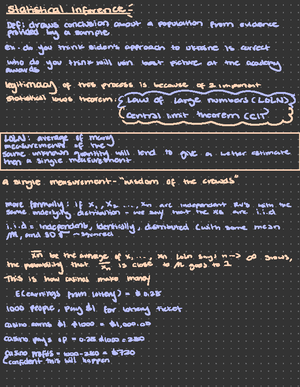 Statistical Inference:
Def: draws conclusion about a population from evidence
provided by a sample
ex. do you think biden's approach to ukraine is correct
who do you think will win best picture at the academy
awards
legitimacy of this process is because of 2 important
statistical laws theorem:
Law of large numbers (LOLN)
central limit theorem (CLT)
LOLN: average of many
measurements of the
same unknown quantity will tend to give a better estimate
than a single measurement
a single measurement - "wisdom of the crowds"
more formally: if X₁, X₂, ..., Xn are independent RV's with the
same underlying distribution - we say that the Xs are i.i.d
i.i.d = independent, identically, distributed (with some mean
M, and SD
X̄n be the average of X, ... Xn LOLN says n -> ∞ grows,
the probability that X̄n is close to M goes to 1
This is how casinos make money
E(earnings from lottery) = $ 0.28
1000 people, pay $1 for lottery ticket
casino earns $1 $1000 = $1,000.00
casino pays if = 0.28 $1000 = 280
casino profits = 1000 - 280 = $720
confident this will happen